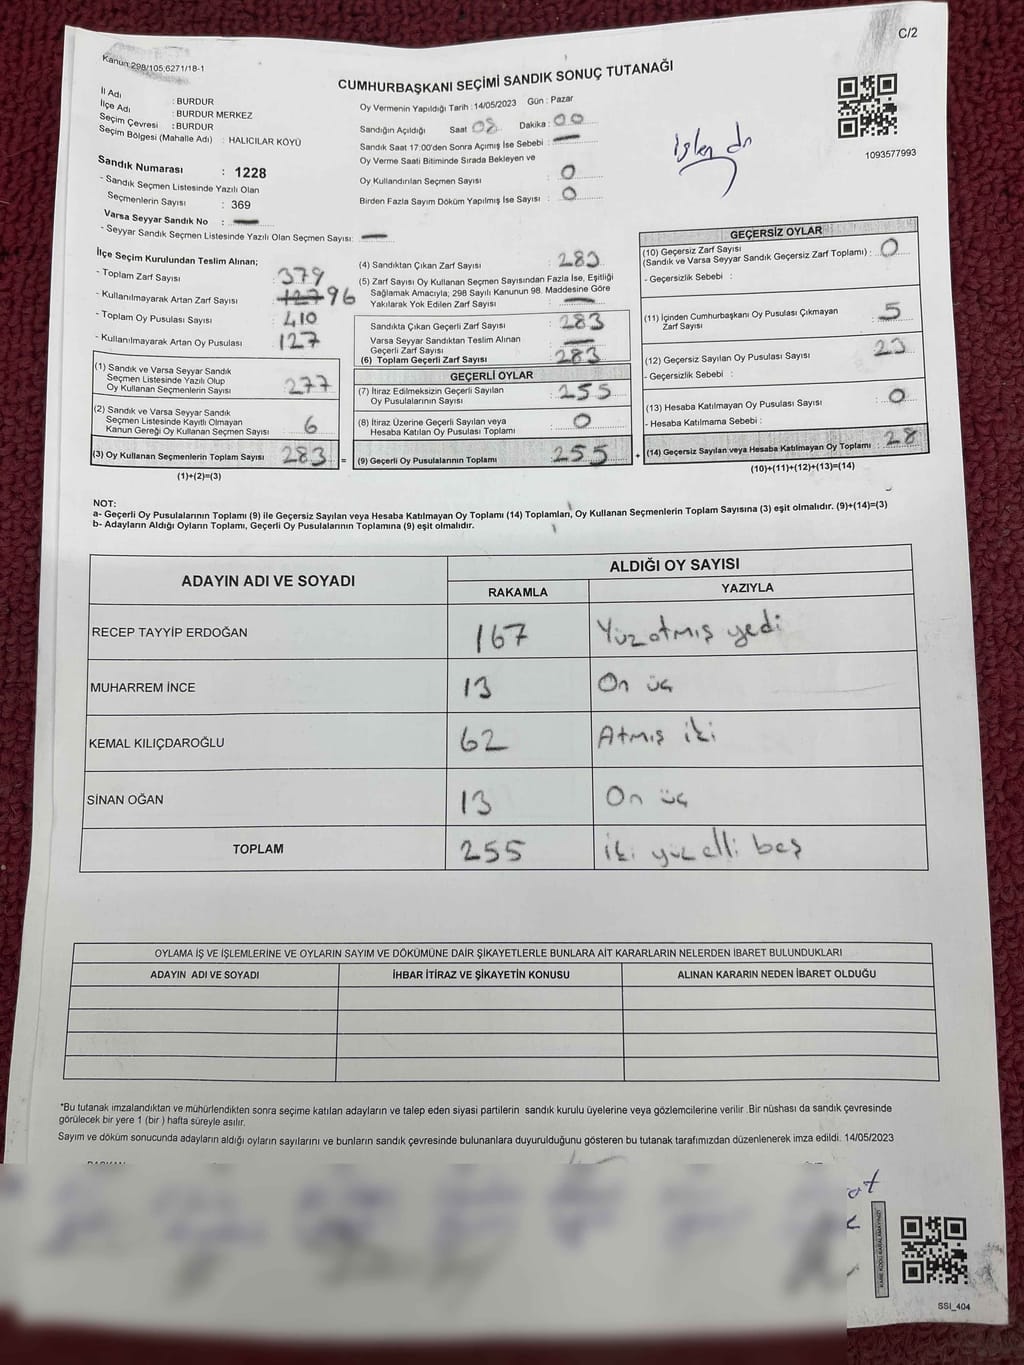 C/2
Kanun:298/105,6271/18-1
CUMHURBAŞKANI SEÇİMİ SANDIK SONUÇ TUTANAĞI
İl Adı : BURDUR
İlçe Adı : BURDUR MERKEZ
Seçim Çevresi : BURDUR
Seçim Bölgesi (Mahalle Adı) : HALICILAR KÖYÜ
Sandık Numarası : 1228
- Sandık Seçmen Listesinde Yazılı Olan
Seçmenlerin Sayısı : 369
Varsa Seyyar Sandık No : —
- Seyyar Sandık Seçmen Listesinde Yazılı Olan Seçmen Sayısı: —
Oy Vermenin Yapıldığı Tarih : 14/05/2023 Gün : Pazar
Sandığın Açıldığı Saat 08 Dakika : 00
Sandık Saat 17:00'den Sonra Açımış İse Sebebi : —
Oy Verme Saati Bitiminde Sırada Bekleyen ve
Oy Kullandırılan Seçmen Sayısı : 0
Birden Fazla Sayım Döküm Yapılmış İse Sayısı : 0
işlendi
1093577993
İlçe Seçim Kurulundan Teslim Alınan;
- Toplam Zarf Sayısı : 379
- Kullanılmayarak Artan Zarf Sayısı : 127 96
- Toplam Oy Pusulası Sayısı : 410
- Kullanılmayarak Artan Oy Pusulası : 127
(1) Sandık ve Varsa Seyyar Sandık
Seçmen Listesinde Yazılı Olup
Oy Kullanan Seçmenlerin Sayısı : 277
(2) Sandık ve Varsa Seyyar Sandık
Seçmen Listesinde Kayıtlı Olmayan
Kanun Gereği Oy Kullanan Seçmen Sayısı : 6
(3) Oy Kullanan Seçmenlerin Toplam Sayısı : 283 =
(1)+(2)=(3)
(4) Sandıktan Çıkan Zarf Sayısı : 283
(5) Zarf Sayısı Oy Kullanan Seçmen Sayısından Fazla İse, Eşitliği
Sağlamak Amacıyla; 298 Sayılı Kanunun 98. Maddesine Göre
Yakılarak Yok Edilen Zarf Sayısı : —
Sandıkta Çıkan Geçerli Zarf Sayısı : 283
Varsa Seyyar Sandıktan Teslim Alınan
Geçerli Zarf Sayısı : —
(6) Toplam Geçerli Zarf Sayısı : 283
GEÇERLİ OYLAR
(7) İtiraz Edilmeksizin Geçerli Sayılan
Oy Pusulalarının Sayısı : 255
(8) İtiraz Üzerine Geçerli Sayılan veya
Hesaba Katılan Oy Pusulası Toplamı : 0
(9) Geçerli Oy Pusulalarının Toplamı : 255 +
GEÇERSİZ OYLAR
(10) Geçersiz Zarf Sayısı
(Sandık ve Varsa Seyyar Sandık Geçersiz Zarf Toplamı) : 0
- Geçersizlik Sebebi :
(11) İçinden Cumhurbaşkanı Oy Pusulası Çıkmayan
Zarf Sayısı : 5
(12) Geçersiz Sayılan Oy Pusulası Sayısı : 23
- Geçersizlik Sebebi :
(13) Hesaba Katılmayan Oy Pusulası Sayısı : 0
- Hesaba Katılmama Sebebi :
(14) Geçersiz Sayılan veya Hesaba Katılmayan Oy Toplamı : 28
(10)+(11)+(12)+(13)=(14)
NOT:
a- Geçerli Oy Pusulalarının Toplamı (9) ile Geçersiz Sayılan veya Hesaba Katılmayan Oy Toplamı (14) Toplamları, Oy Kullanan Seçmenlerin Toplam Sayısına (3) eşit olmalıdır. (9)+(14)=(3)
b- Adayların Aldığı Oyların Toplamı, Geçerli Oy Pusulalarının Toplamına (9) eşit olmalıdır.
ADAYIN ADI VE SOYADI ALDIĞI OY SAYISI
RAKAMLA YAZIYLA
RECEP TAYYİP ERDOĞAN 167 Yüzatmış yedi
MUHARREM İNCE 13 On üç
KEMAL KILIÇDAROĞLU 62 Atmış iki
SİNAN OĞAN 13 On üç
TOPLAM 255 iki yüz elli beş
OYLAMA İŞ VE İŞLEMLERİNE VE OYLARIN SAYIM VE DÖKÜMÜNE DAİR ŞİKAYETLERLE BUNLARA AİT KARARLARIN NELERDEN İBARET BULUNDUKLARI
ADAYIN ADI VE SOYADI İHBAR İTİRAZ VE ŞİKAYETİN KONUSU ALINAN KARARIN NEDEN İBARET OLDUĞU
*Bu tutanak imzalandıktan ve mühürlendikten sonra seçime katılan adayların ve talep eden siyasi partilerin sandık kurulu üyelerine veya gözlemcilerine verilir .Bir nüshası da sandık çevresinde
görülecek bir yere 1 (bir ) hafta süreyle asılır.
Sayım ve döküm sonucunda adayların aldığı oyların sayılarını ve bunların sandık çevresinde bulunanlara duyurulduğunu gösteren bu tutanak tarafımızdan düzenlenerek imza edildi. 14/05/2023
KARE KODU KARALAMAYINIZ!
SSI_404